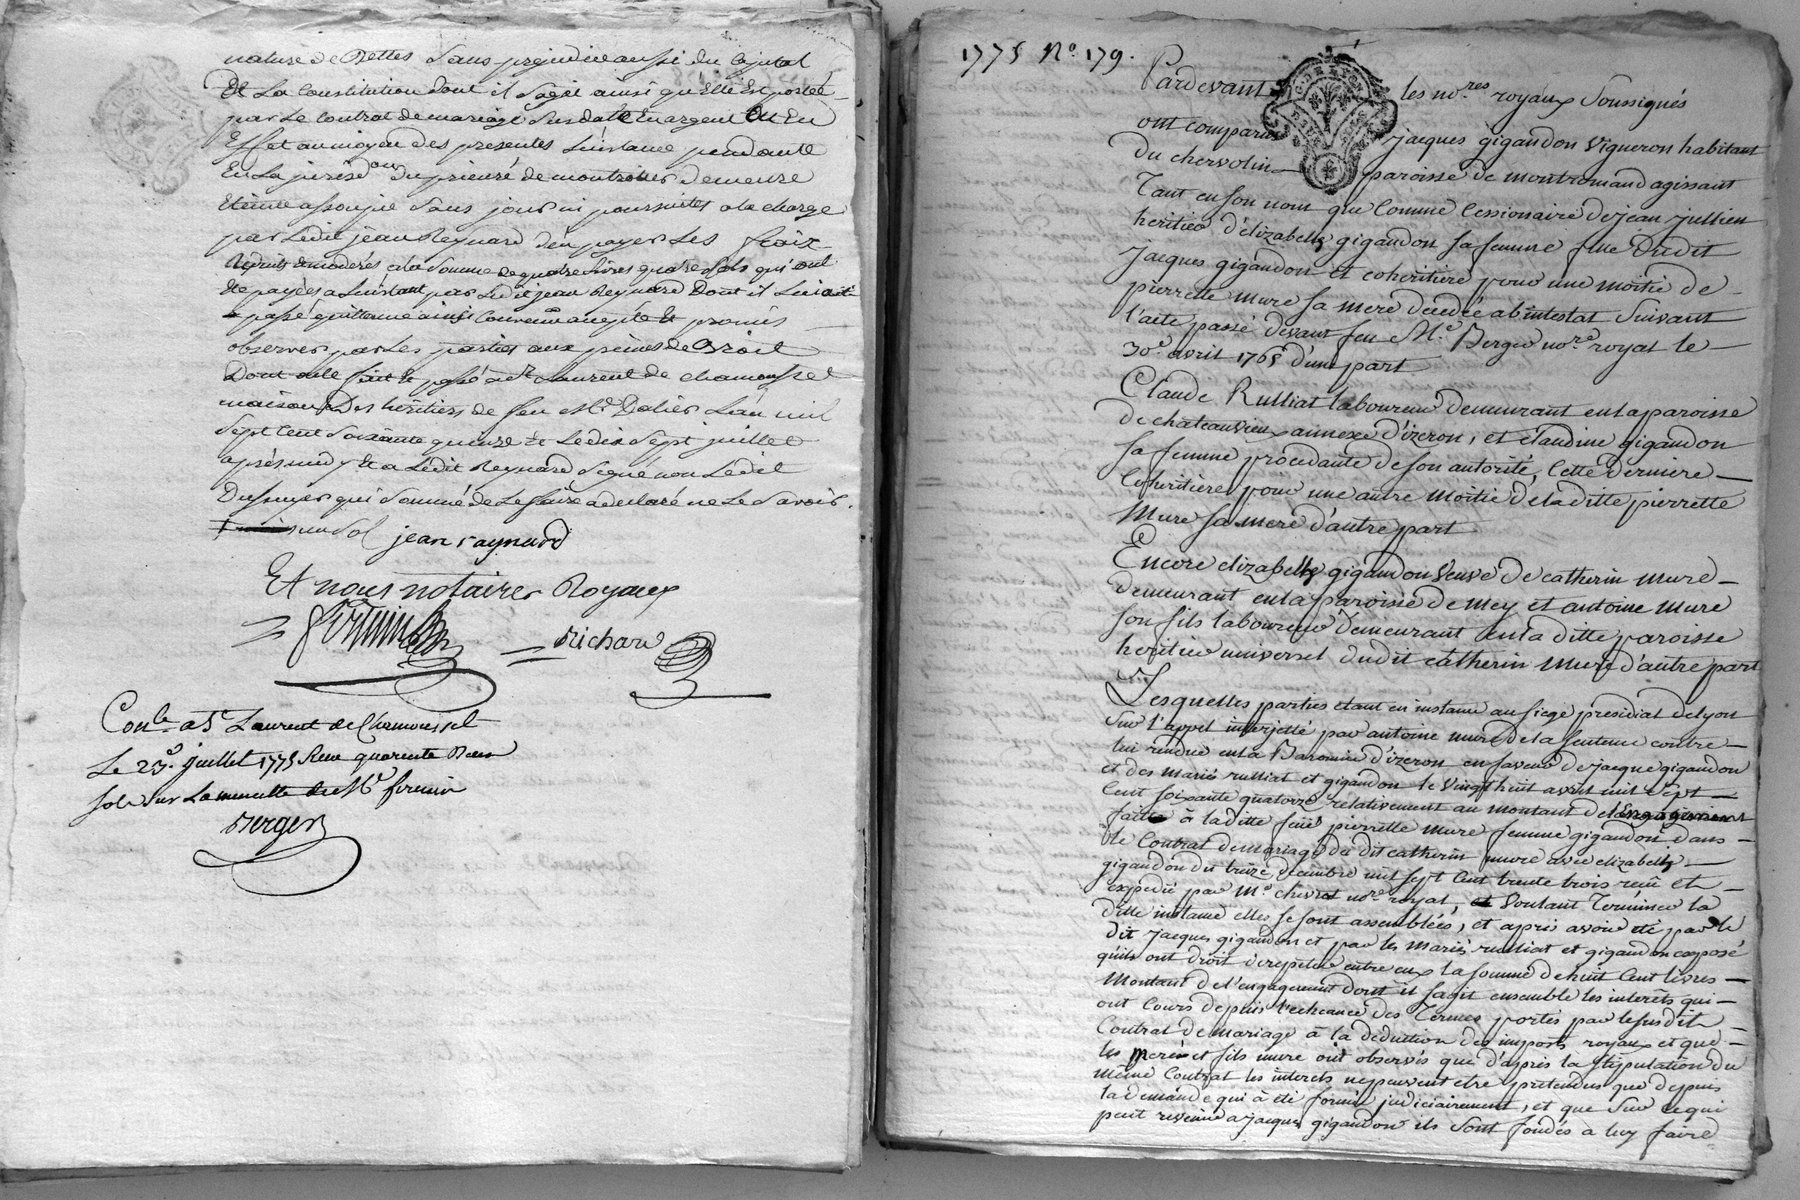 nature de dettes sans prejudice aussi du capital
de la Constitution dont il s'agit ainsi qu'elle est portée
par le contrat de mariage susdatté en argent ou en
Effet au moyen des presentes l'instance pendante
En la jurisd.on du prieuré de montrotier demeure
Eteinte assoupie sans jour ni poursuittes a la charge
par ledit jean Reynard d'en payer les fraix
Reduits & moderés a la somme de quatre livres quatre sols qui ont
été payées a l'instant par led it jean Reynard Dont il lui a été
passé quittance ainsi convenu accepté et promis
observer par les parties aux peines de Droit
Dont acte fait & passé a St Laurent de chamousset
maison des héritiers de feu Mr Dalier L'an mil
sept cent soixante quinze & le dix sept juillet
après midy & a Ledit Reynard signé non Ledit
Dussuyer qui sommé de le faire a declaré ne le savoir.
un sol jean raynard
Et nous notaires Royaux
Richard
Con.le a St Laurent de Chamousset
Le 23e juillet 1775 Reçu quarente Deux
sols sur La minutte de Me firmin
Berger
1775 No. 179.
Pardevant les no.res royaux soussignés
ont comparus jacques gigandon vigneron habitant
du chervolin paroisse de montromand agissant
Tant en son nom que comme cessionaire de jean jullien
heritier d'élizabeth gigandon sa femme fille dudit
jacques gigandon et coheritiere pour une moitié de
pierrette mure sa mere decedée abintestat suivant
l'acte passé devant feu Me. Berger no.re royal le
30e. avril 1765 d'une part
Claude Rulliat laboureur demeurant en la paroisse
de chateauvieux annexe d'izeron, et claudine gigandon
sa femme procedante de son autorité, cette derniere
coheritiere pour une autre moitié de laditte pierrette
Mure sa mere d'autre part
Encore elizabeth gigandon veuve de catherin mure
demeurant en la paroisse de Mey et antoine mure
son fils laboureur demeurant en la ditte paroisse
heritier universel dudit catherin mure d'autre part
Lesquelles parties etant en instance au siege presidial de lyon
sur l'appel interjetté par antoine mure de la sentence contre
lui rendue en la Baronnie d'izeron en faveur de jacque gigandon
et des mariés rulliat et gigandon le vingt huit avril mil sept
cent soixante quatorze relativement au montant de l'engagement
faitte à laditte feüe pierrette mure femme gigandon dans
le contrat de mariage du dit catherin mure avec elizabeth
gigandon du treize decembre mil sept cent trente trois reçu et
expedié par Me. chevrot no.re royal, et voulant terminer la
ditte instance elles se sont assemblées, et après avoir été par le
dit jacques gigandon et par les mariés rulliat et gigandon exposé
qu'ils ont droit de repeter entre eux la somme de huit cent livres
montant de l'engagement dont il s'agit ensemble les interêts qui
ont cours depuis l'echeance des termes portés par le susdit
contrat de mariage à la deduction des imposts royaux et que
les mere et fils mure ont observés que d'après la stipulation du
même contrat les interets ne peuvent etre pretendus que depuis
la demande qui à été formée judiciairement, et que sur ce qui
peut revenir a jacques gigandon ils sont fondés à luy faire